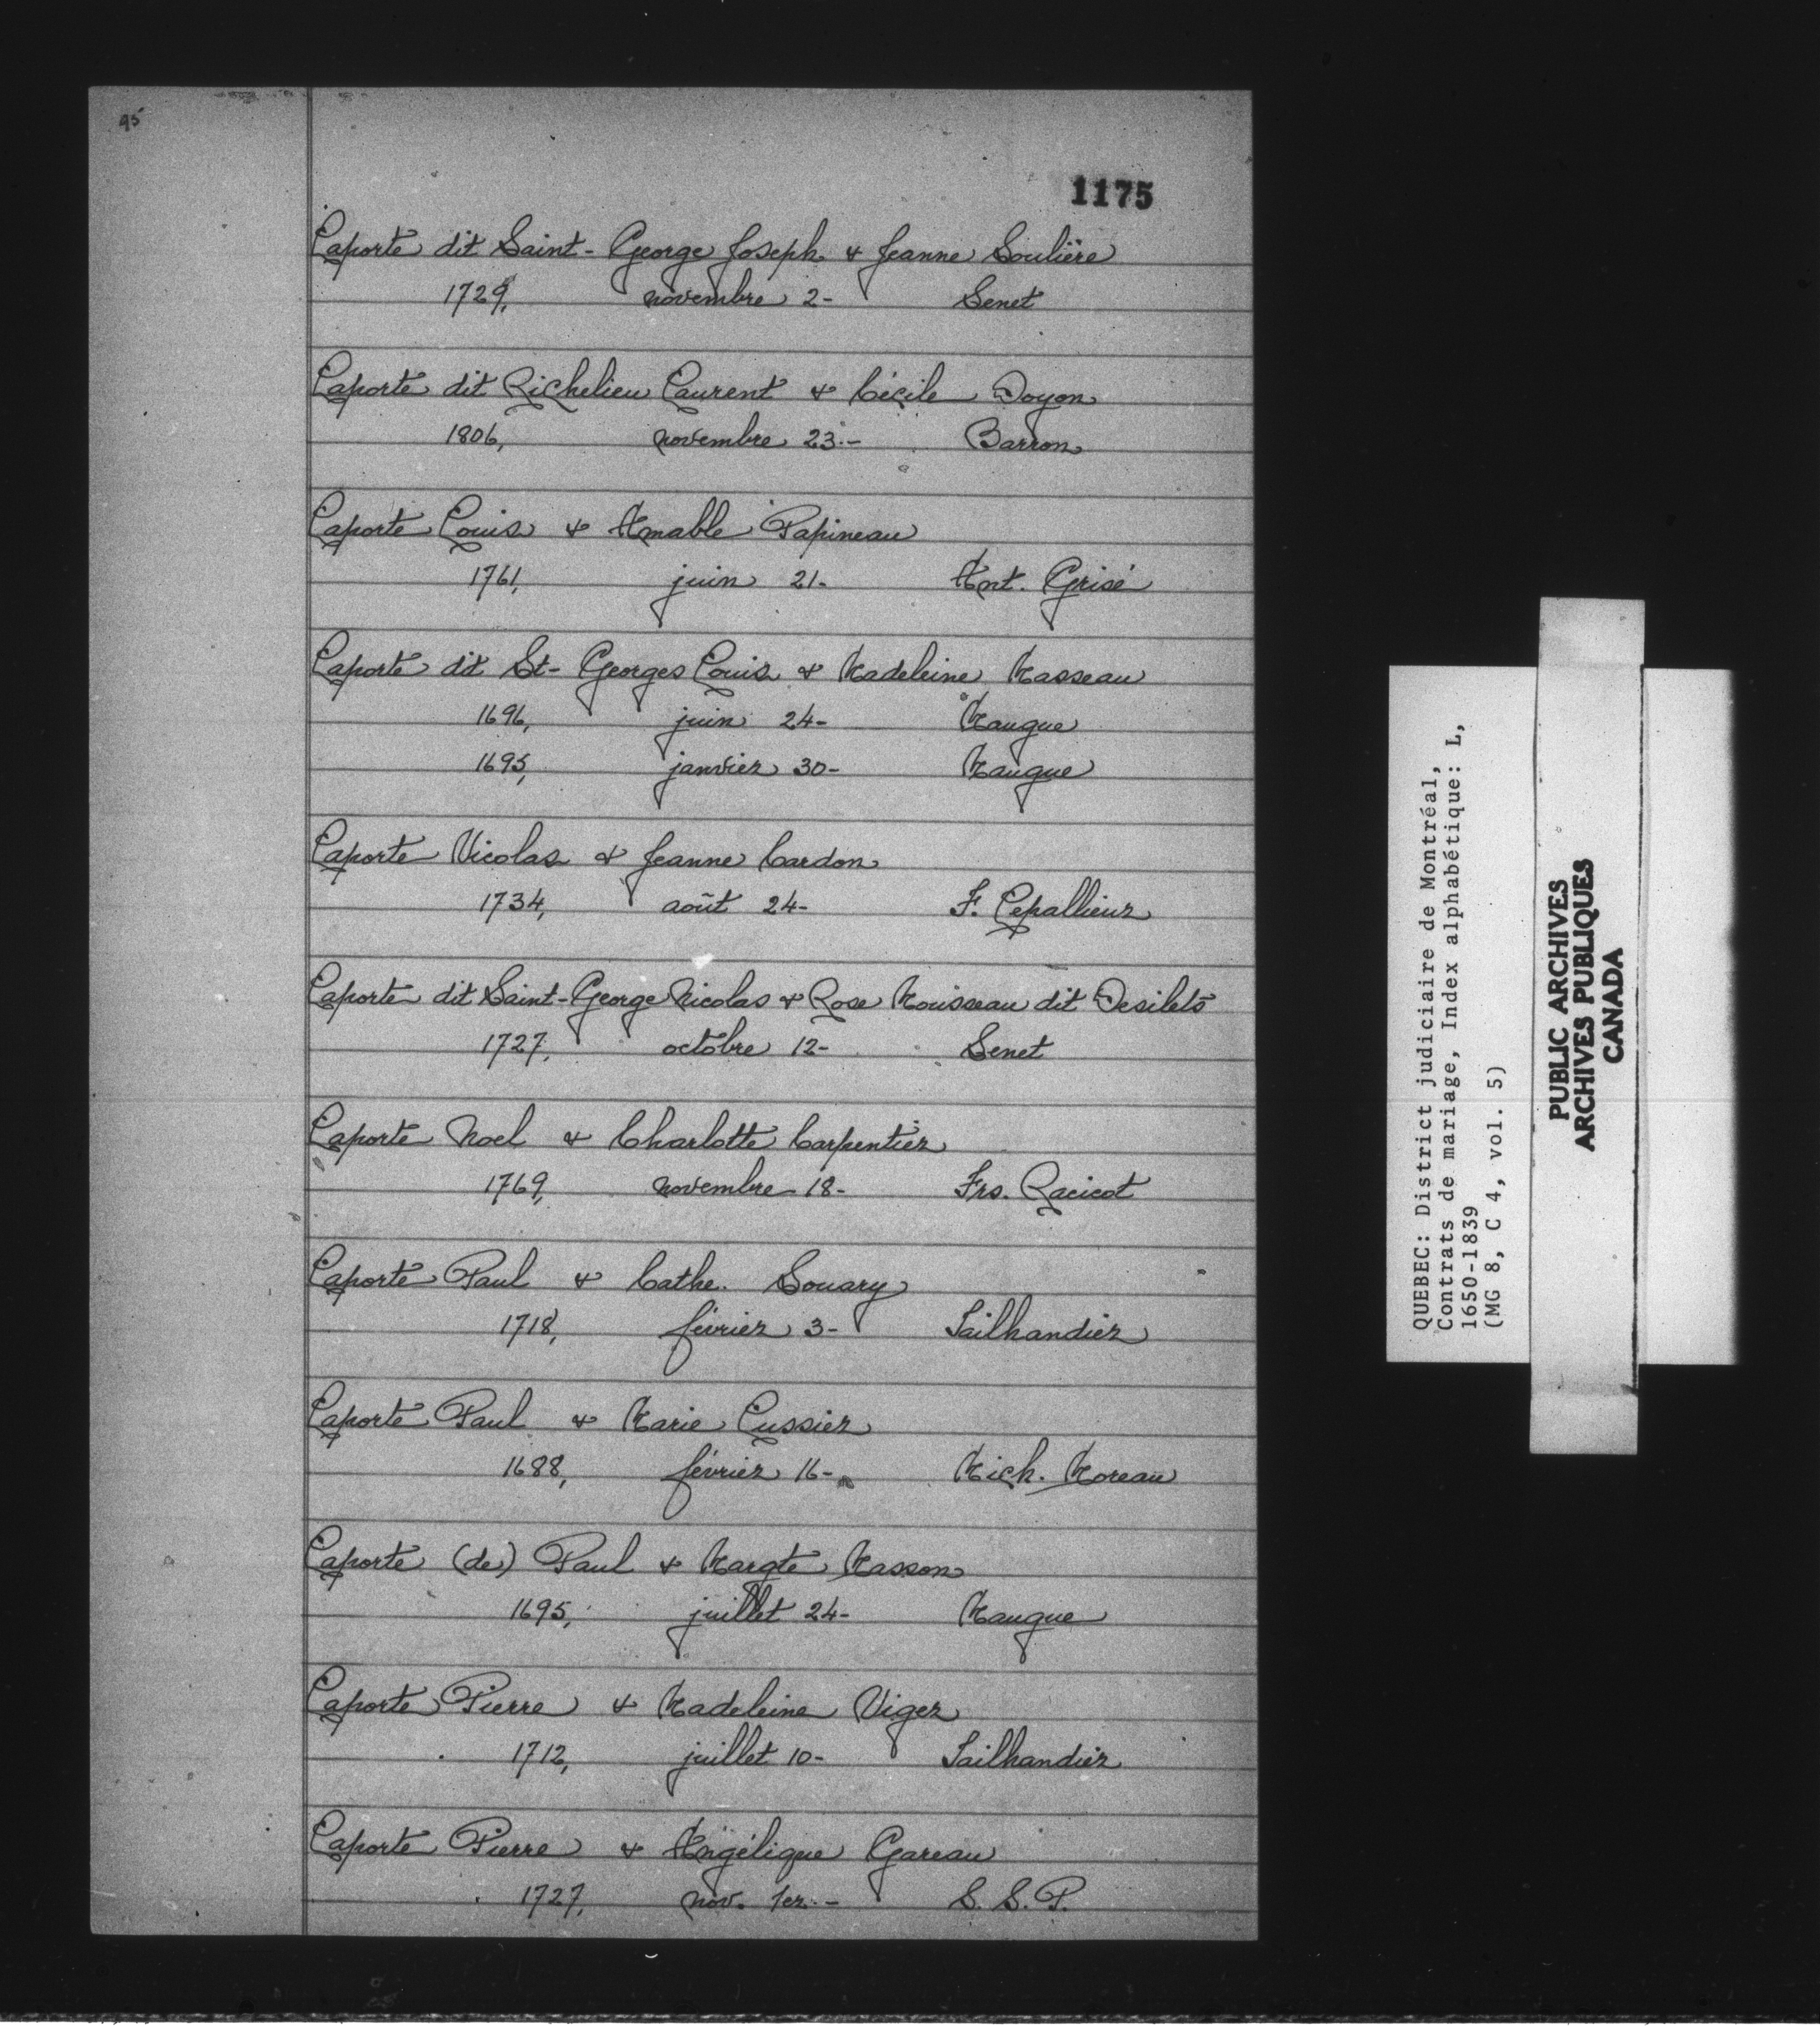 95
1175
Laporte dit Saint-George Joseph & Jeanne Soulière
1729, novembre 2- Senet
Laporte dit Richelieu Laurent & Cécile Doyon
1806, novembre 23.- Barron
Laporte Louis & Amable Papineau
1761, juin 21- Ant. Grisé
Laporte dit St-Georges Louis & Madeleine Masseau
1696, juin 24- Maugue
1695, janvier 30- Maugue
Laporte Nicolas & Jeanne Cardon
1734, août 24- F. Lepallieur
Laporte dit Saint-George Nicolas & Rose Mousseau dit Desilets
1727, octobre 12- Senet
Laporte Noel & Charlotte Carpentier
1769, novembre 18- Frs. Racicot
Laporte Paul & Cathe. Souary
1718, février 3- Tailhandier
Laporte Paul & Marie Lussier
1688, février 16- Mich. Moreau
Laporte (de) Paul & Margte Masson
1695, juillet 24- Maugue
Laporte Pierre & Madeleine Viger
1712, juillet 10- Tailhandier
Laporte Pierre & Angélique Gareau
1727, nov. 1er.- S. S. P.
QUEBEC: District judiciaire de Montréal,
Contrats de mariage, Index alphabétique: L,
1650-1839
(MG 8, C 4, vol. 5)
PUBLIC ARCHIVES
ARCHIVES PUBLIQUES
CANADA